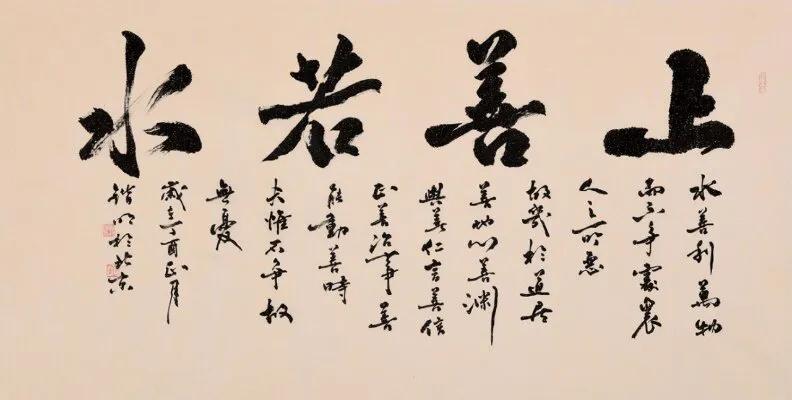 上善若水
水善利萬物
而不争處衆
人之所惡
故幾於道居
善地心善渊
與善仁言善信
正善治事善
能動善時
夫惟不争故
無憂
歲在丁酉正月
於北京